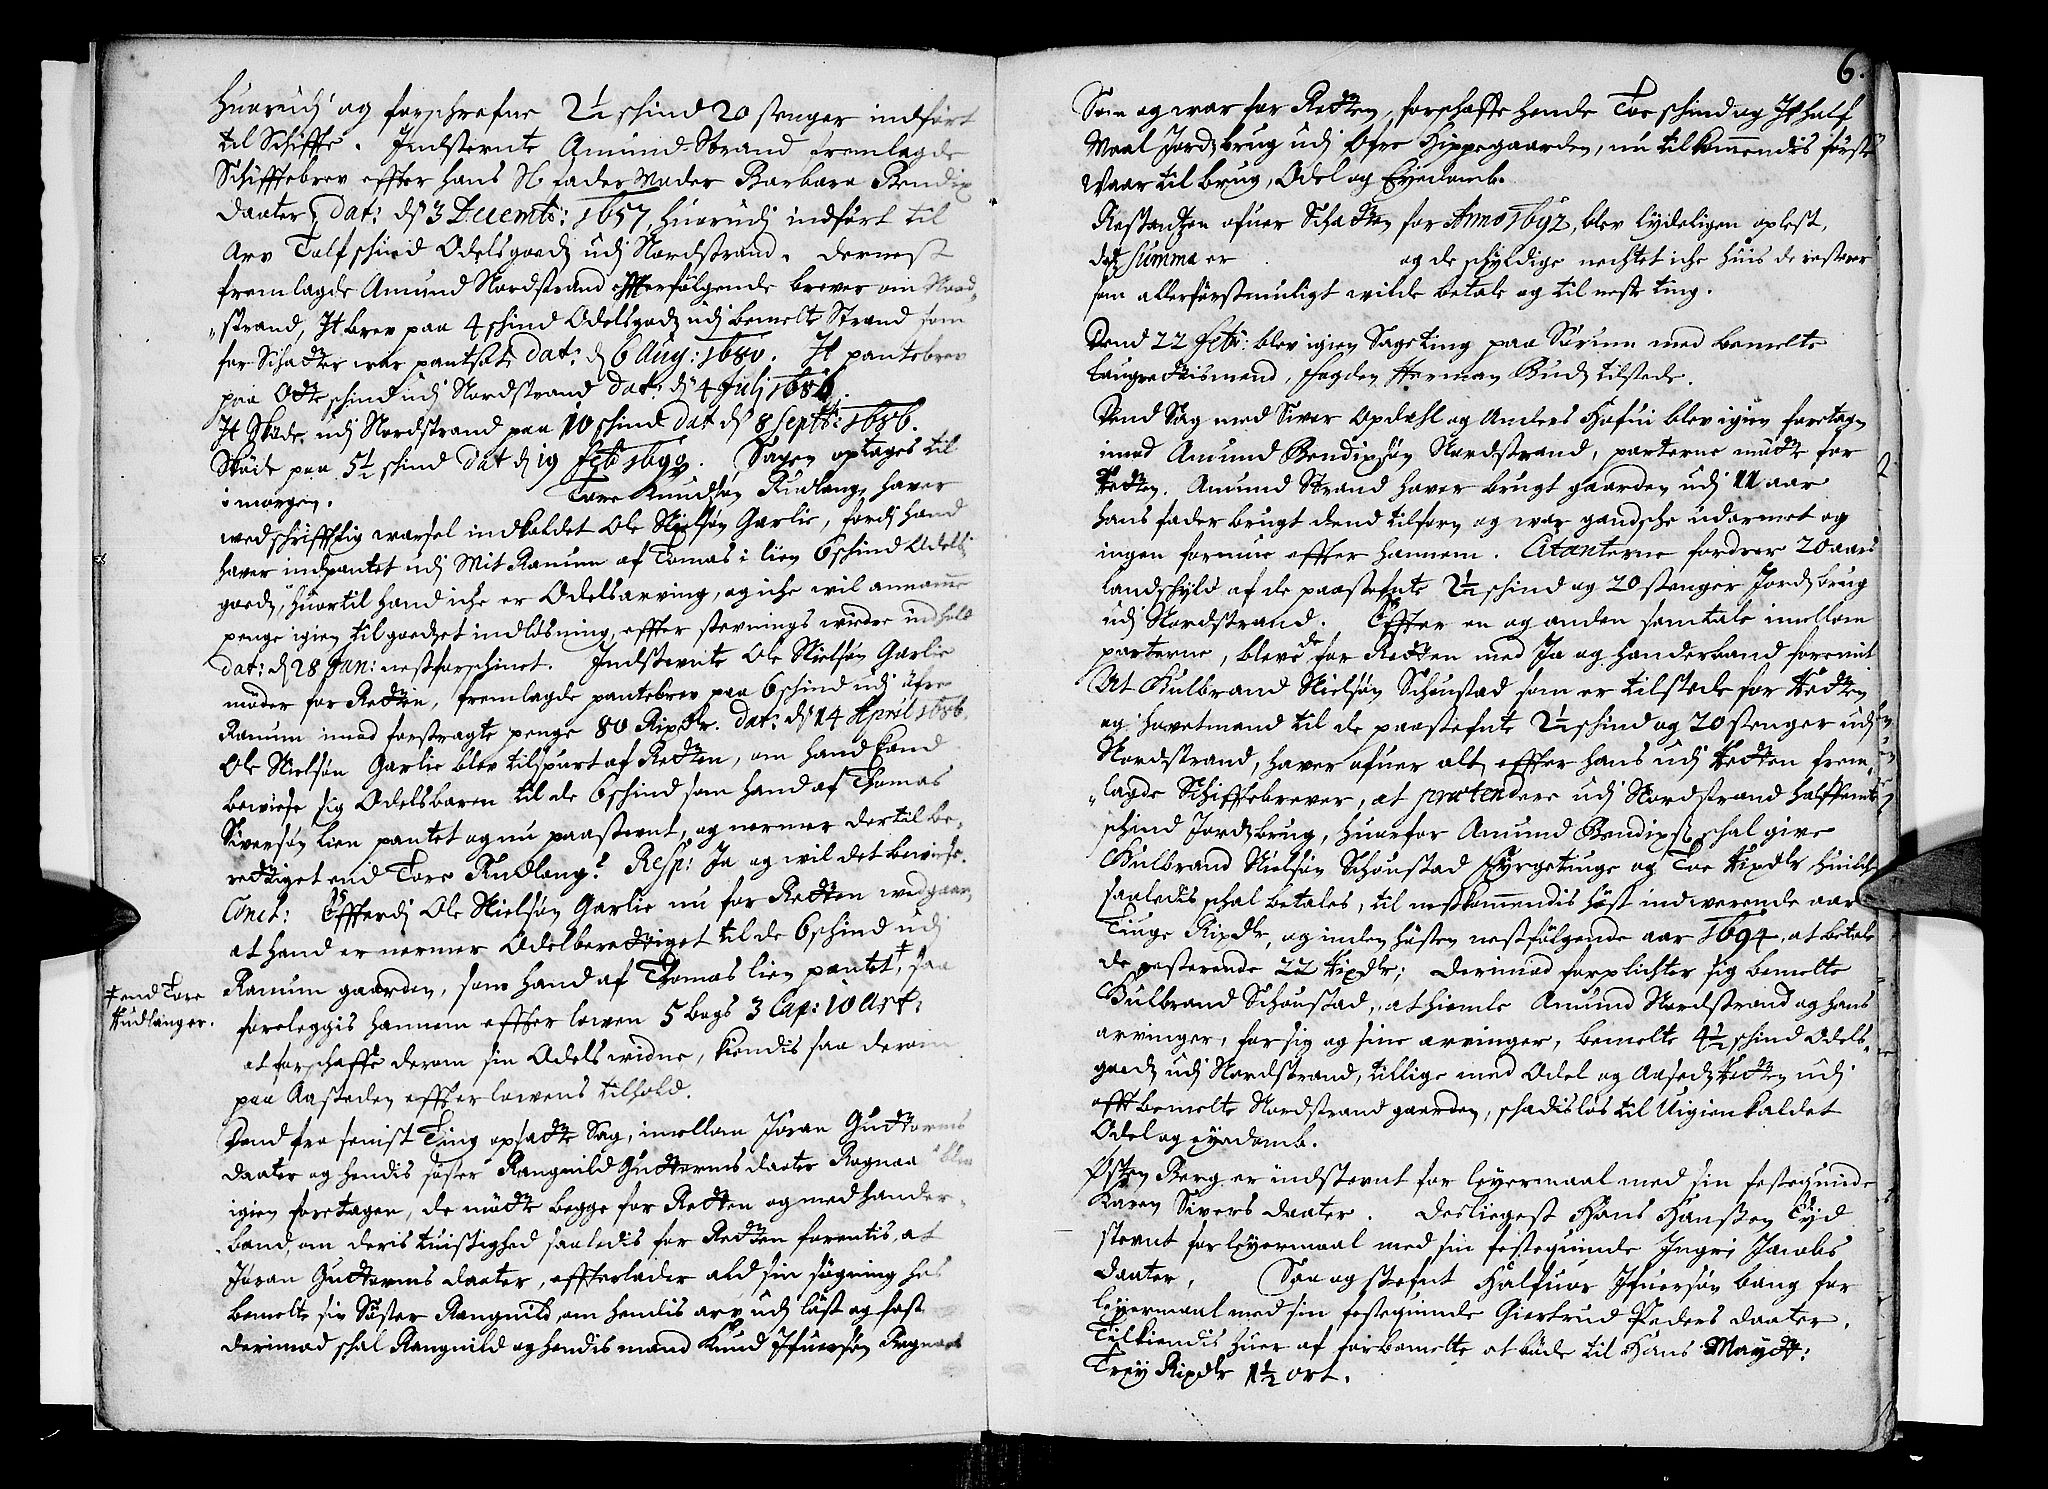 huorudj og forschrefne 2½ schind 20 stenger indført
til Schiffte. Indstevnte Amund Strand fremlagde
Schifftebrev effter hans Sl fader Moder Barbara Bendix
daater, dat: dj 3 Decemb: 1657, huorudj indført til
Arv Tolf schind Odelsgoedz udj Nordstrand. dernest
fremlagde Amund Nordstrand effterfølgende brever om Nord„
„strand, It brev paa 4 schind Odelsgodz udj bemelte Strand som
for Schatter war pantsat, dat: dj 6 Aug: 1680. It pantebrev
paa Otte schind udj Nordstrand dat: dj 4 Julj 1686.
It Skøde udj Nordstrand paa 10 schind dat dj 8 Septb: 1686.
Skøde paa 5½ schind dat dj 19 Feb 1692. Sagen optages til
i morgen. Tore Knudsøn Rudlang haver
med schrifftlig warsel indkaldet Ole Nielsøn Garlie, fordj hand
haver indpantet udj Mit Ranum af Tomas i lien 6 schind Odels
goedz, huortil hand iche er Odelsarving, og iche wil annamme
penge igien til goedzet indløsning, effter stevnings widre indhold
dat: dj 28 Jan: nestforschinet. Indstevnte Ole Nielsøn Garlie
møder for Retten, fremlagde pantebrev paa 6 schind udj øfre
Ranum imod forstragte penge 80 Rixdlr. dat: dj 14 April 1686.
Ole Nielsøn Garlie blev tilspurt af Retten, om hand kand
bewiese sig Odelsbaren til de 6 schind som hand af Thomas
Siversøn lien pantet og nu paastevnt, og nermer dertil be„
rettiget end Tore Rudlang? Resp: Ja og wil det bewiese.
Conct: Effterdj Ole Nielsøn Garlie nu for Retten wedgaar,
at hand er nermer Odelberettiget til de 6 schind udj
Ranum gaarden, som hand af Thomas lien pantet ‡, saa
‡ end Tore
Rudlanger.
foreleggis hannem effter lowen 5 bogs 3 Cap: 10 Art:
at forschaffe derom sin Odels widne, kiendis saa derom
paa Aasteden effter lowens tilhold.
Dend fra senist Ting opsatte Sag, imellom Jøran Guttorms
daater og hendis søster Rangnild Guttorms daater Rognaa blev
igien foretagen, de møtte begge for Retten og med hander„
band, om deris tuistighed saaledis for Retten forentis, at
Jøran Guttorms daater, effterlader ald sin søgning hos
bemelte sin Søster Rangnild, om hendis arv udj løst og fast
derimod schal Rangnild og hendis mand Knud Ifuersøn Rognaa
6.
Som og war for Retten, forschaffe hende Toe schind og It half
Maal Jordz brug udj Øfre Kippegaarden, nu tilkommendis første
Waar til brug, Odel og Eyedomb.
Restantzen ofuer Schatten for Anno 1692, blev lydeligen oplest,
dez Summa er og de schyldige nechtet iche huis de resterer
som allerførstmuligt wilde betale og til neste ting.
Dend 22 Feb: blev igien Sageting paa Sørum med bemelte
laugrettismend, fogden Herman Budz tilstede.
Dend Sag med Siver Opdahl og Anders Hofui blev igien foretagen
imod Amund Bendixsøn Nordstrand, parterne møtte for
Retten. Amund Strand haver brugt gaarden udj 11 aar
hans fader brugt dend tilforn og war gandsche udarmet og
ingen formue effter hannem. Citanterne fordrer 20 aars
landschyld af de paastefnte 2½ schind og 20 stenger Jordz brug
udj Nordstrand. Effter en og anden samtale imellom
parterne, bleve de for Retten med Ja og handerband forenit
At Gulbrand Nielsøn Schoustad som er tilstede for Retten
og hovetmand til de paastefnte 2½ schind og 20 stenger udj
Nordstrand, haver ofuer alt, effter hans udj Retten frem„
„lagde Schifftebrever, at prætendere udj Nordstrand halffemte
schind Jordz brug, huorfor Amund Bendixsøn schal give
Gulbrand Nielsøn Schoustad Fyrgetiuge og Toe Rixdlr huilche
saaledis schal betales, til nestkommendis høst indwerende aar
Tiuge Rixdlr, og inden høsten nestfølgende aar 1694, at betale
de resterende 22 Rixdlr; derimod forplichter sig bemelte
Gulbrand Schoustad, at hiemle Amund Nordstrand og hans
arvinger, for sig og sine arvinger, bemelte 4½ schind Odels„
goedz udj Nordstrand, tillige med Odel og Aasedz Retten udj
offtbemelte Nordstrand gaarden, schadisløs til Uigienkaldet
Odel og eyedomb.
Østen Berg er indstevnt for leyermaal med sin festequinde
Karen Sivers daater. Desliegest Hans Hanssen Tyd
stevnt for leyermaal med sin festequinde Ingri Jacobs
daater, Saa og stefnt Halfuor Ifuersøn bang for
leyermaal med sin festequinde Giertrud Peders daater.
Tilkiendis huer af forbemelte at bøde til Hans Maytt:
Trey Rixdlr 1½ ort.